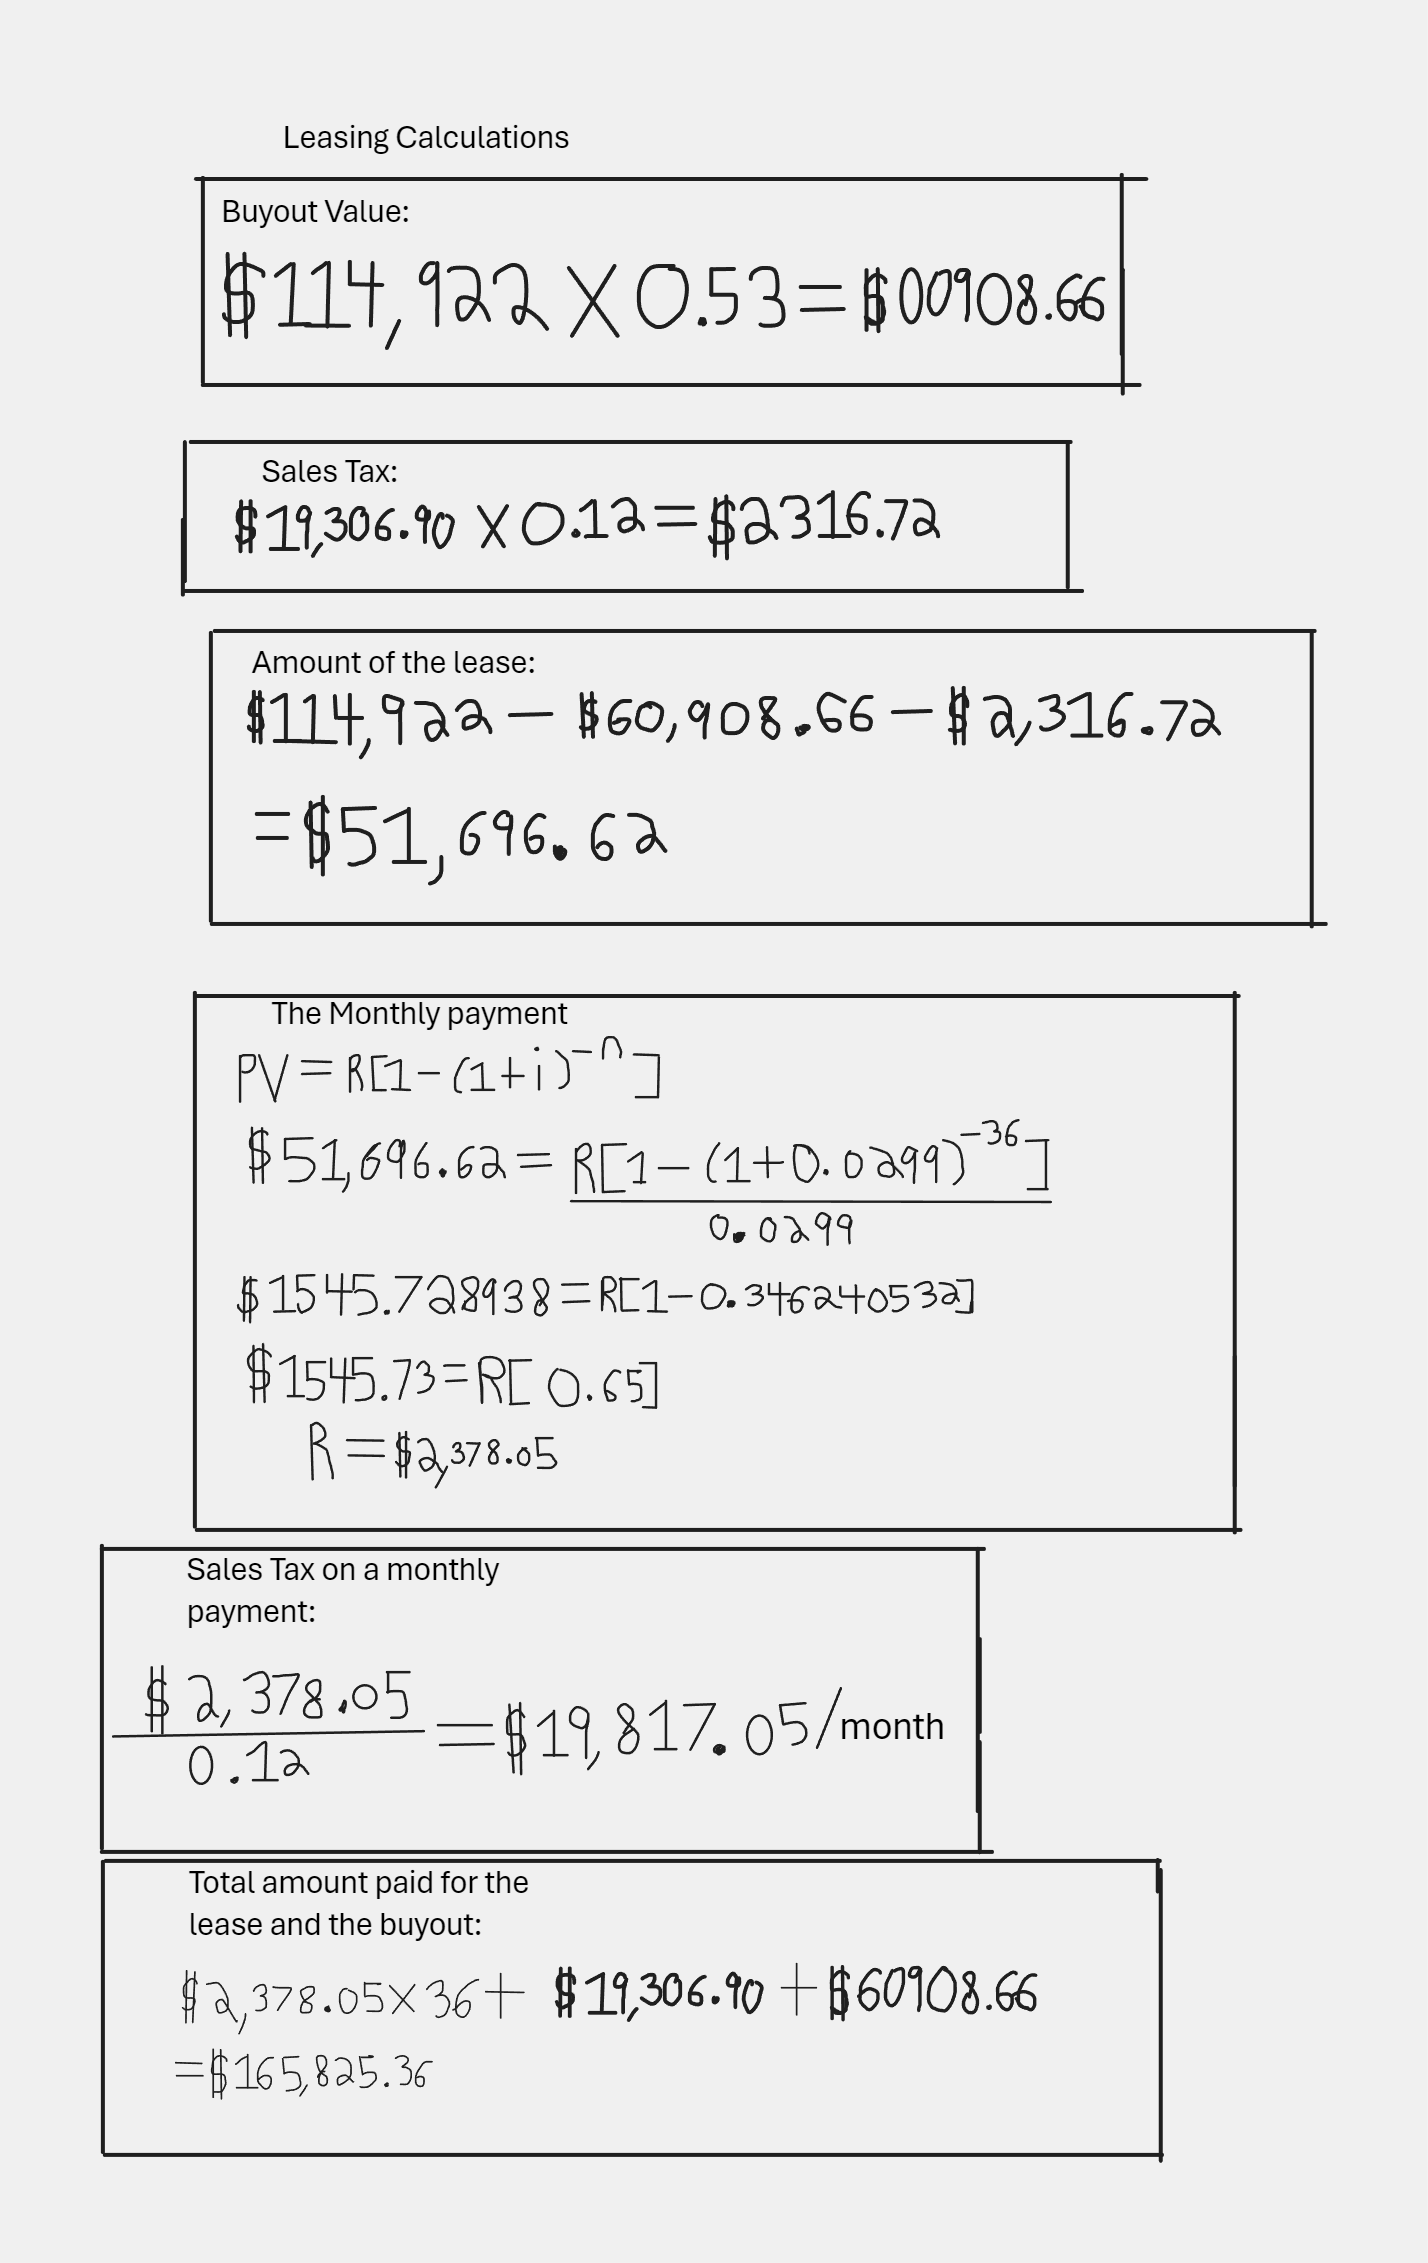 Leasing Calculations
Buyout Value:
$114,922 X 0.53 = $00908.66
Sales Tax:
$19,306.90 X 0.12 = $2316.72
Amount of the lease:
$114,922 - $60,908.66 - $2,316.72
= $51,696.62
The Monthly payment
PV = R[1-(1+i)^-n]
$51,696.62 = R[1-(1+0.0299)^-36]
0.0299
$1545.728938 = R[1-0.346240532]
$1545.73 = R[0.65]
R = $2,378.05
Sales Tax on a monthly
payment:
$2,378.05
0.12
= $19,817.05/month
Total amount paid for the
lease and the buyout:
$2,378.05 X 36 + $19,306.90 + $60908.66
= $165,825.36